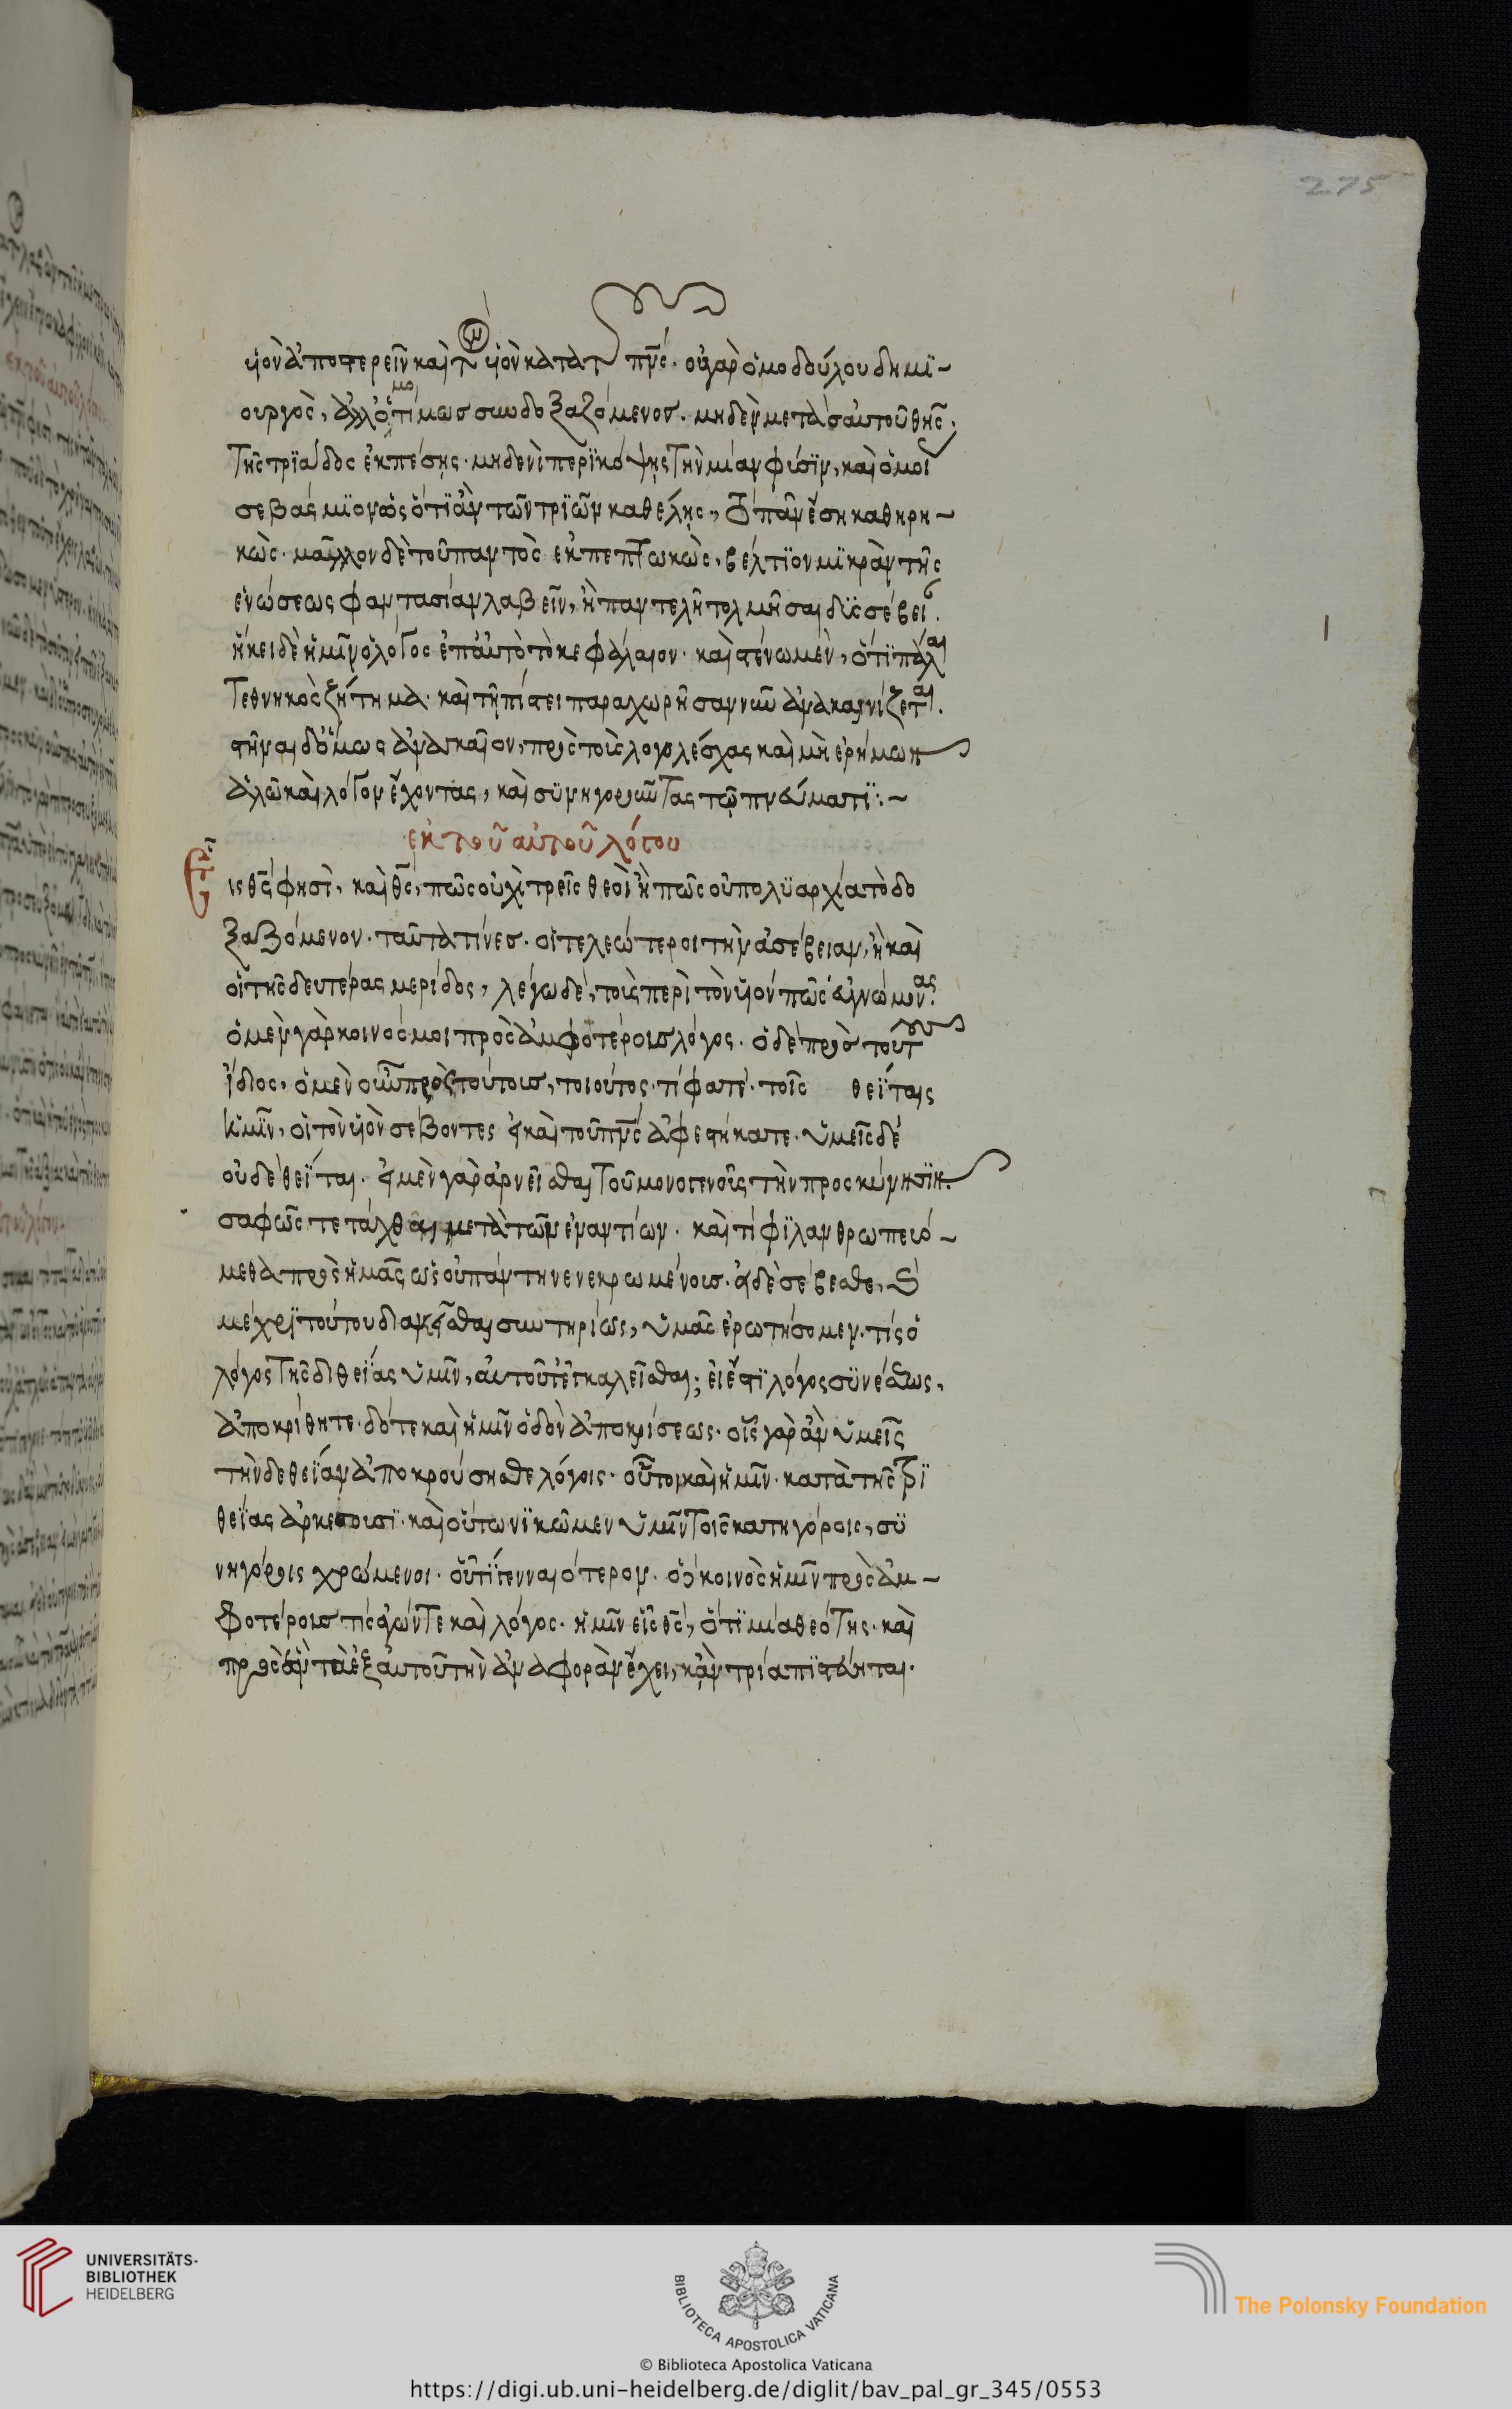 275
υἱὸν ἀποστερεῖν καὶ τ υἱὸν κατὰ τ πνς. οὐ γὰρ ὁμοδούλου δημϊ-
ουργὸς, ἀλλ' ὁμοτίμως συνδοξαζόμενος. μηδὲν μετὰ σαυτοῦ θῇς.
τῆς τρϊάδος ἐκπέσῃς. μηδενὶ περϊκόψῃς τὴν μίαν φύσϊν, καὶ ὁμοί
σεβασμϊον ὡς ὅτϊ ἂν τῶν τρϊῶν καθέλῃς, τὸ πᾶν ἔσῃ καθηρη-
κὼς. μᾶλλον δὲ τοῦ παντὸς ἐκπεπτωκὼς, βέλτϊον μϊκρὰν τῆς
ἑνώσεως φαντασίαν λαβεῖν, ἢ παντελῆ τολμῆσαι δϋσσέβει.
ἥκει δὲ ἡμῖν ὁ λόγος ἐπ' αὐτὸ τὸ κεφάλαιον. καὶ στένω μὲν, ὅτϊ πάλαι
τεθνηκὸς ζήτημα. καὶ τῇ πίστει παραχωρῆσαν νῦν ἀνακαινίζεται.
στῆναι δ' ὅμως ἀναγκαῖον, πρὸς τοὺς λογολέσχας καὶ μὴ ἐρήμων
ἁλῶναι λόγον ἔχοντας, καὶ σϋνηγοροῦντας τῷ πνεύματϊ:-
ἐκ τοῦ αὐτοῦ λόγου
ις θς φησὶ, καὶ θς, πῶς οὐχὶ τρεῖς θεοὶ ἢ πῶς οὐ πολϋαρχία τὸ δο
ξαζόμενον. ταῦτα τίνες. οἱ τελεώτεροι τὴν ἀσέβειαν, ἢ καὶ
οἱ τῆς δευτέρας μερίδος, λέγω δὲ, τοὺς περὶ τὸν υἱόν πῶς εὐγνώμονας.
ὁ μὲν γὰρ κοινός μοι πρὸς ἀμφοτέρους λόγος. ὁ δὲ πρὸς τούτους
ἴδιος, ὁ μὲν οὖν πρὸς τούτους, τοιοῦτος. τί φατὲ. τοῖς θεΐταις
ἡμῖν, οἱ τὸν υἱὸν σέβοντες εἰ καὶ τοῦ πνς ἀφεστήκατε. ὑμεῖς δὲ
οὐ δεθεΐται. εἰ μὲν γὰρ ἀρνεῖσθαι τοῦ μονογενοῦς τὴν προσκύνησϊν.
σαφῶς τετάχθαι μετὰ τῶν ἐναντίων. καὶ τί φϊλανθρωπευό-
μεθα πρὸς ἡμᾶς ὡς οὐ πάντη νενεκρωμένους. εἰ δὲ σέβεσθε, καὶ
μέχρϊ τούτου διακεῖσθαι σωτηρίως, ὑμᾶς ἐρωτήσομεν. τίς ὁ
λόγος τῆς διθεΐας ὑμῖν, αὐτοῦτε ἐγκαλεῖσθαι; εἰ ἔστϊ λόγος σϋνέσεως,
ἀποκρίθητε. δότε καὶ ἡμῖν ὁδὸν ἀποκρίσεως. οἷς γὰρ ἂν ὑμεῖς
τὴν δεθεΐαν ἀποκρούσησθε λόγοις. οὗτοι καὶ ἡμῖν. κατὰ τῆς τρϊ
θεΐας ἀρκέσουσϊ. καὶ οὕτω νϊκῶμεν ὑμῖν τοῖς κατηγόροις, σϋ
νηγόροις χρώμενοι. οὗ τϊ γενναιότερον. ὃς κοινὸς ἡμῖν πρὸς ἀμ-
φοτέρους τίς ἀγών τε καὶ λόγος. ἡμῖν εἷς θς, ὅτϊ μία θεότης. καὶ
πρὸς ἓν τὰ ἐξ αὐτοῦ τὴν ἀναφορὰν ἔχει, κἂν τρία πϊστεύηται.
UNIVERSITÄTS-
BIBLIOTHEK
HEIDELBERG
BIBLIOTECA APOSTOLICA VATICANA
The Polonsky Foundation
© Biblioteca Apostolica Vaticana
https://digi.ub.uni-heidelberg.de/diglit/bav_pal_gr_345/0553